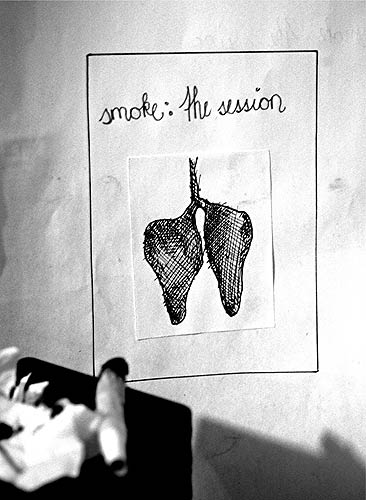 smoke: the session